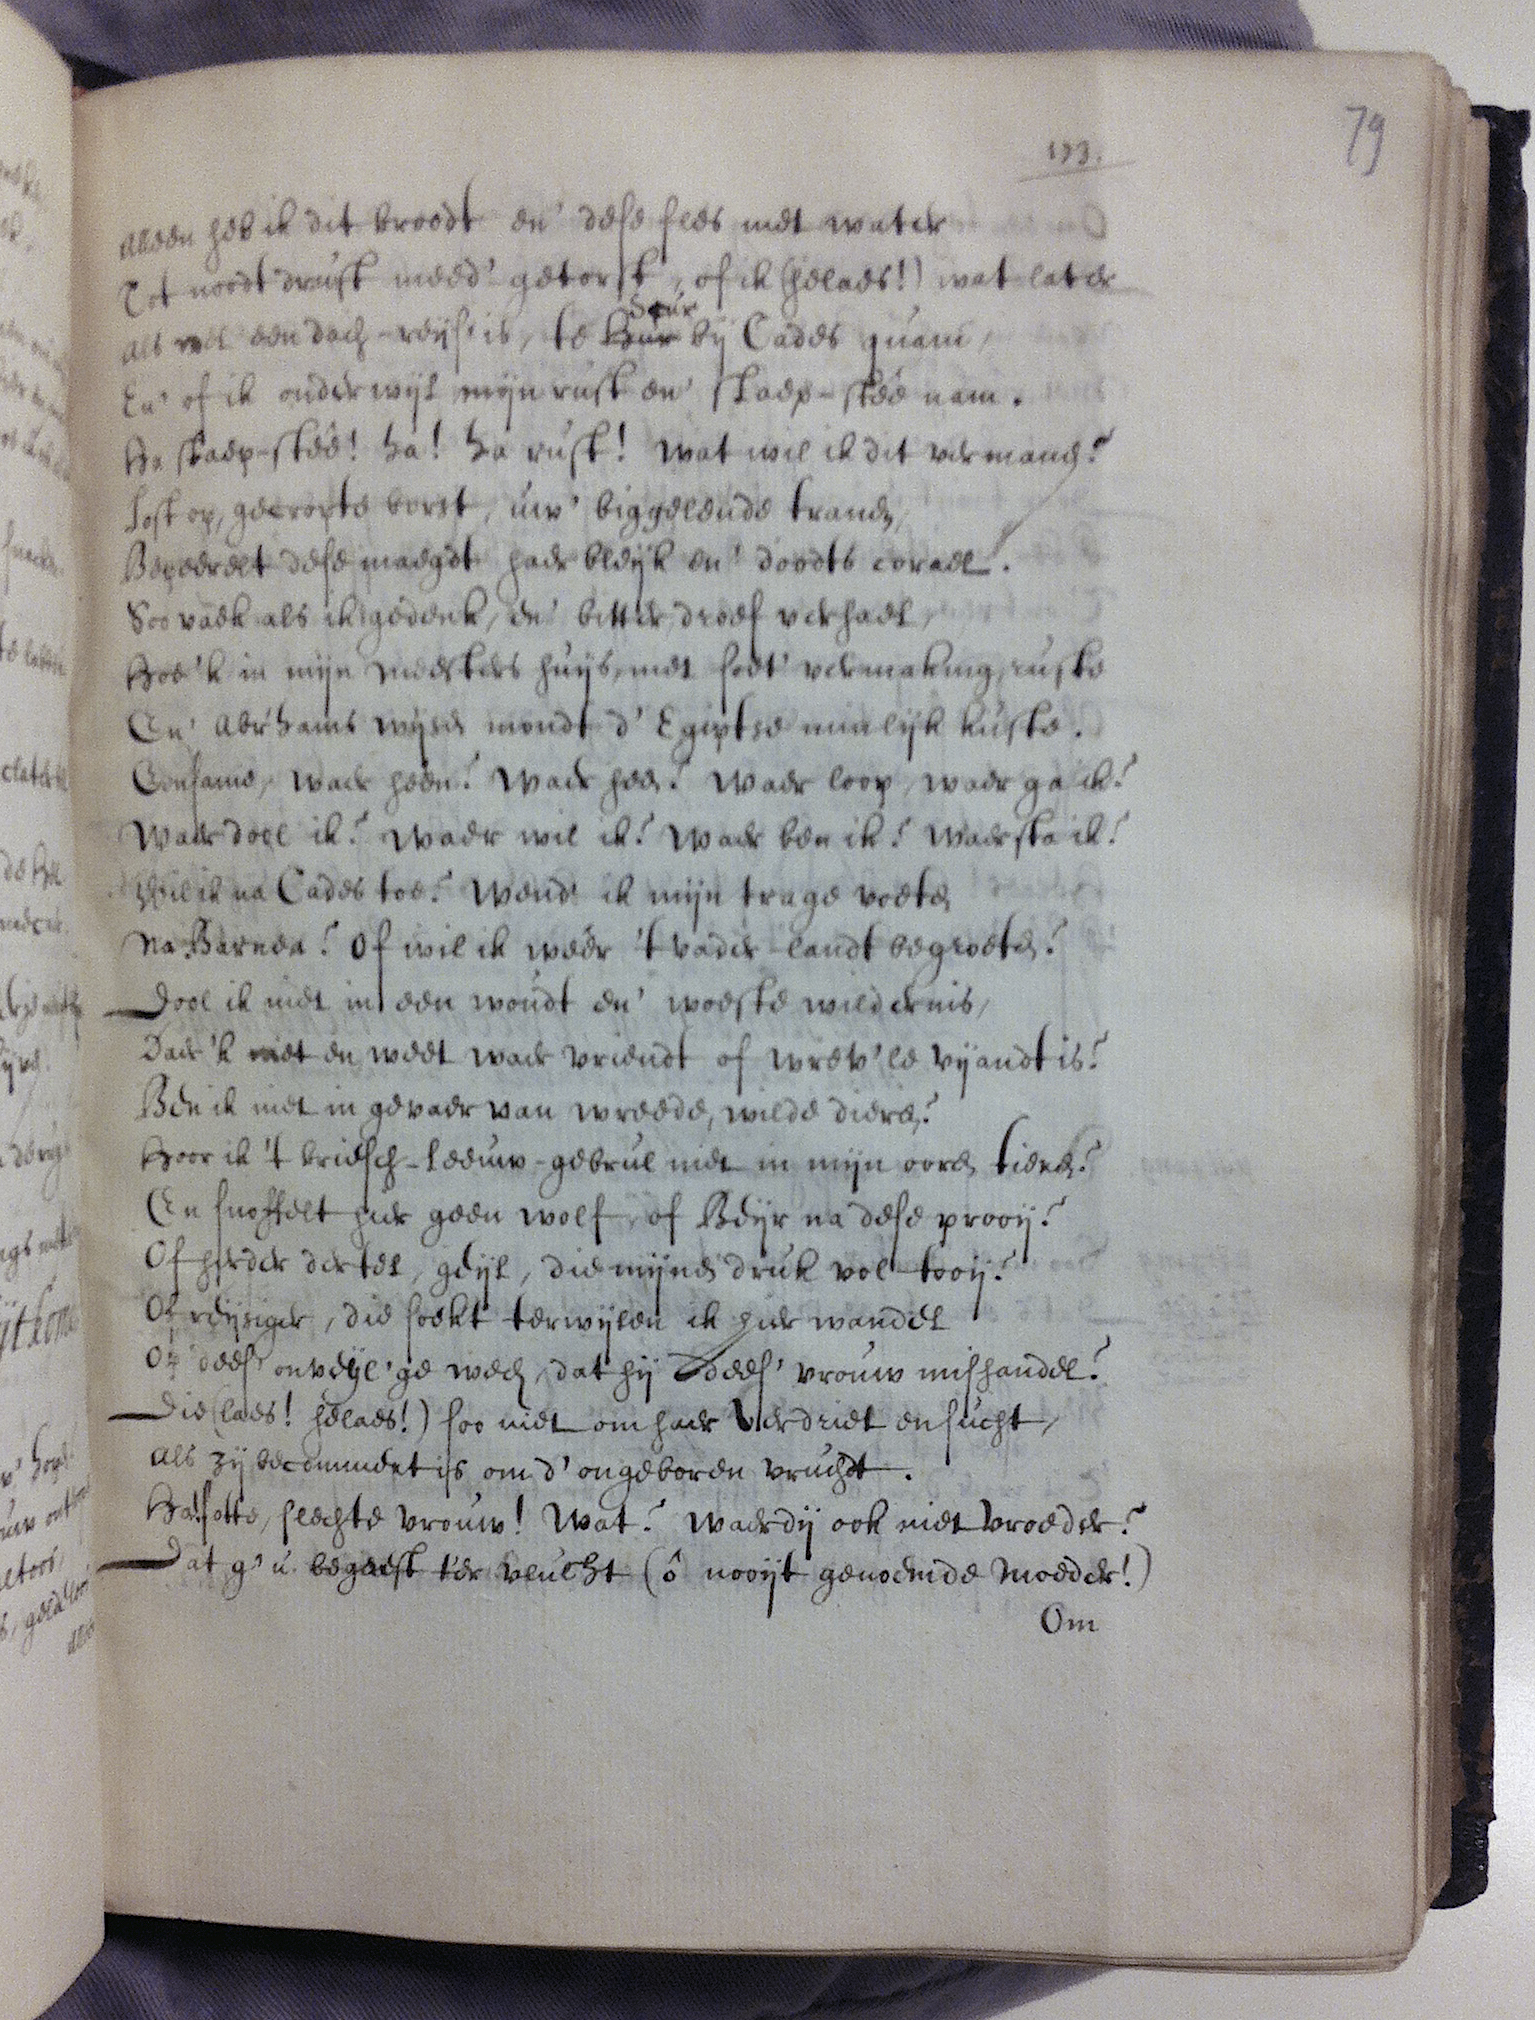 79
153.
Alleen heb ik dit broodt en' dese fles met water
Tot noodt druft meed' getorst, of ik (helaes!) wat later
Als wel een dach-reijs' is, te Sur bij Cades quam,
En' of ik onderwijl mijn rust en' slaep-stêe nam.
Ha slaep-stêe! ha! ha rust! Wat wil ik dit vermanen?
Lost op, gecropte borst, uw' biggelende tranen,
Bepeerelt dese maegdt haer bleijk en' doodts corael.
Soo vaek als ik gedenk, en' bitter droef verhael,
Hoe 'k in mijn meesters huijs, met soet' vermaking, ruste
En' Abr'hams wijsen mondt d' Egiptse minlijk kuste.
Eensame, waer heen? Waer heen? Waer loop, waer ga ik?
Waer dool ik? Waer wil ik? Waer ben ik? Waer sta ik?
Wil ik na Cades toe? Wend' ik mijn trage voeten
Na Barnea? Of wil ik wéér 't vader-landt begroeten?
Dool ik niet in een woudt en' woeste wildernis,
Daer 'k niet en weet waer vriendt of wrev'le vijandt is?
Ben ik niet in gevaer van wreede, wilde dieren?
Hoor ik 't briesch-leeuw-gebrul niet in mijn ooren tieren?
En snoffelt hier geen wolf, of Beijr na dese prooij?
Of herder dertel, geijl, die mijnen druk vol-tooij?
Of reijsiger, die soekt terwijlen ik hier wandel
Op dees' onveijl'ge weeh, dat hij dees' vrouw mishandel?
Die (laes! helaes!) soo niet om haer verdriet en sucht,
Als zij becommert is om d' ongeboren vrucht.
Ha! sotte, slechte vrouw! Wat? Waerdij ook niet vroeder?
Dat g' u begeest ter vlucht (ô nooijt genoemde Moeder!)
Om